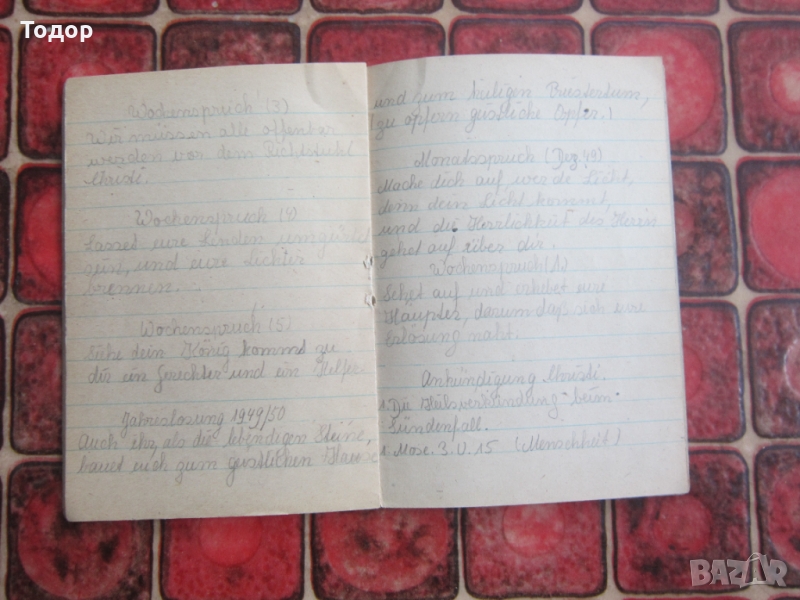 Тодор
Wochenspruch (3)
Wir müssen alle offenbar
werden vor dem Richtstuhl
Christi.
Wochenspruch (4)
Lasset eure Lenden umgürtet
sein, und eure Lichter
brennen.
Wochenspruch (5)
Siehe dein König kommt zu
dir ein Gerechter und ein Helfer
Jahreslosung 1949/50
Auch ihr, als die lebendigen Steine,
bauet euch zum geistlichen Hause
und zum heiligen Priestertum,
zu opfern geistliche Opfer.)
Monatsspruch (Dez. 49)
Mache dich auf werde Licht,
denn dein Licht kommt,
und die Herrlichkeit des Herrn
gehet auf über dir.
Wochenspruch (1)
Sehet auf und erhebet eure
Häupter, darum daß sich eure
Erlösung naht.
Ankündigung Christi.
1. Die Heilsverkündung beim
Sündenfall.
1. Mose. 3. V. 15 (Menschheit)
BAZAR